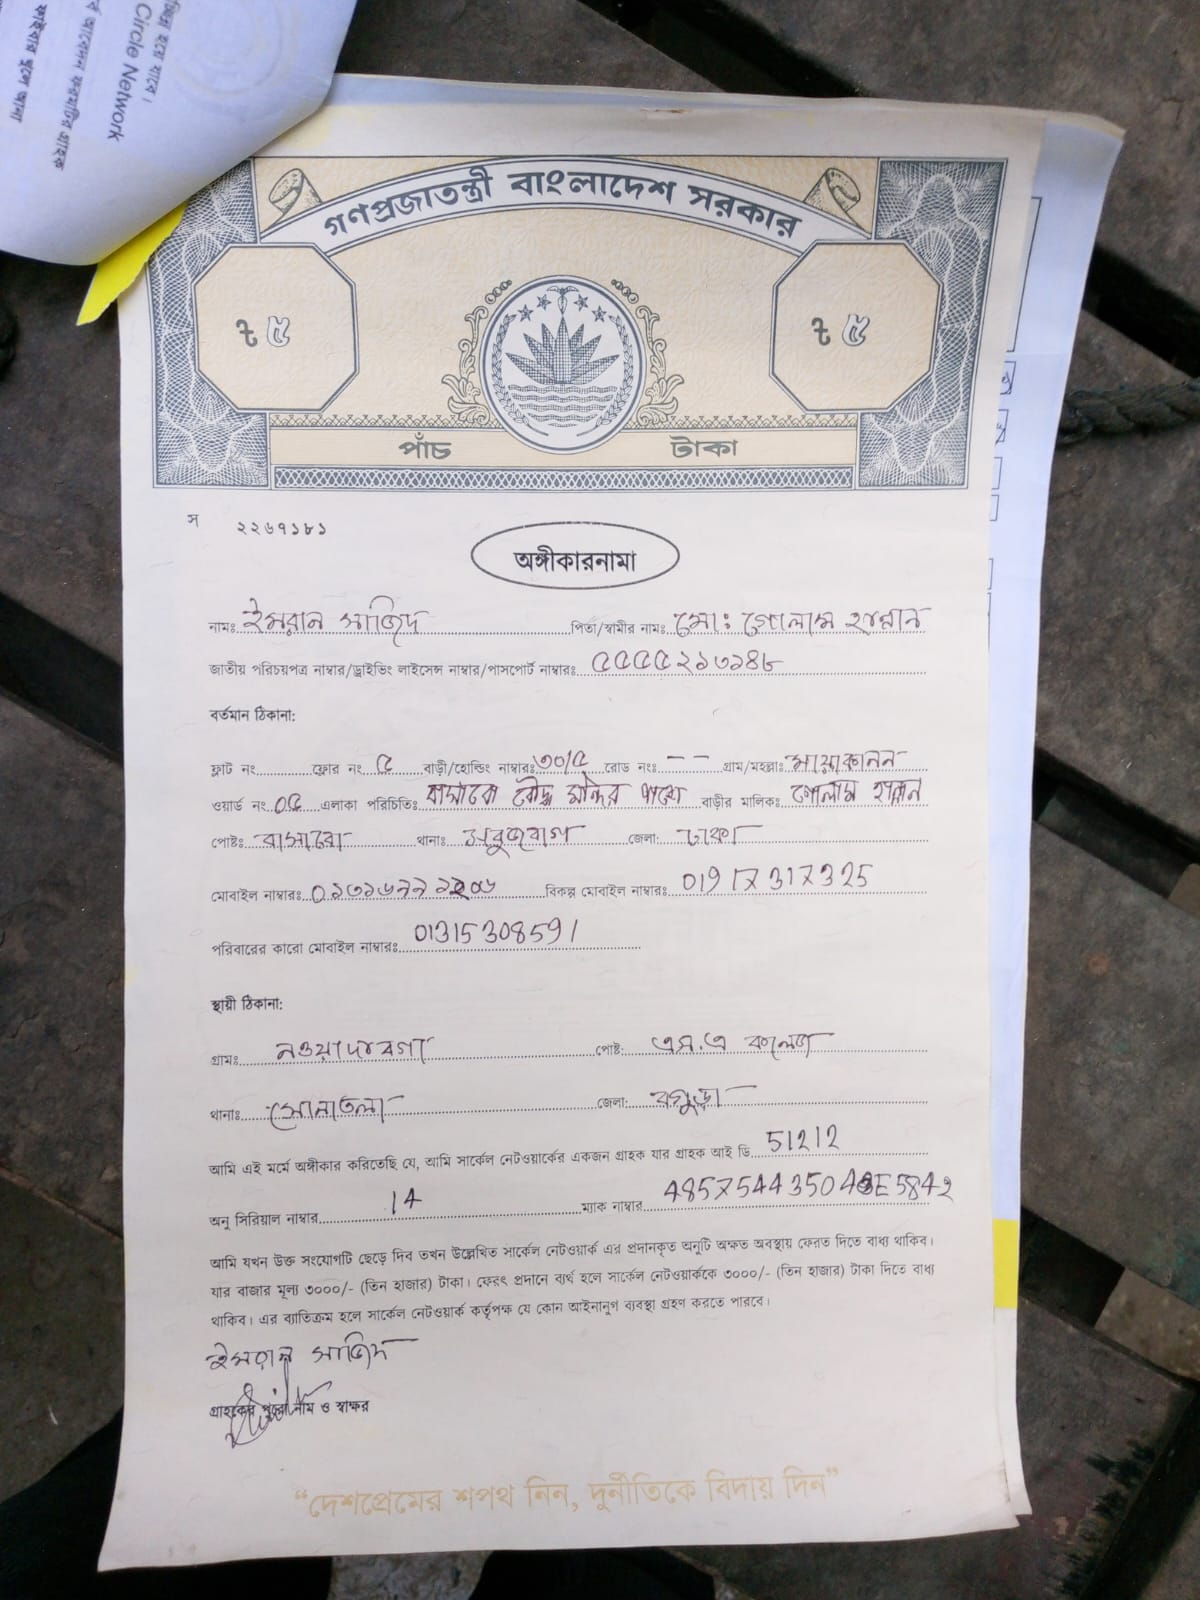 ছিন্ন হয়ে যাবে।
Circle Network
গণপ্রজাতন্ত্রী বাংলাদেশ সরকার
৳ ৫ ৳ ৫
পাঁচ টাকা
স ২২৬৭১৮১
অঙ্গীকারনামা
নামঃ ইমরান সাজিদ পিতা/স্বামীর নামঃ মোঃ গোলাম হান্নান
জাতীয় পরিচয়পত্র নাম্বার/ড্রাইভিং লাইসেন্স নাম্বার/পাসপোর্ট নাম্বারঃ ৫৫৫৫২১৩১৪৮
বর্তমান ঠিকানা:
ফ্লাট নং ফ্লোর নং ৫ বাড়ী/হোল্ডিং নাম্বারঃ ৩০/৫ রোড নংঃ -- গ্রাম/মহল্লাঃ মায়াকানন
ওয়ার্ড নং ০৫ এলাকা পরিচিতিঃ বাসাবো বৌদ্ধ মন্দির পাশে বাড়ীর মালিকঃ গোলাম হান্নান
পোষ্টঃ বাসাবো থানাঃ সবুজবাগ জেলা: ঢাকা
মোবাইল নাম্বারঃ বিকল্প মোবাইল নাম্বারঃ 01917317325
পরিবারের কারো মোবাইল নাম্বারঃ 01315308591
স্থায়ী ঠিকানা:
গ্রামঃ নওয়াদাবগা পোষ্ট: এস.এ কলেজ
থানাঃ সোনাতলা জেলা: বগুড়া
আমি এই মর্মে অঙ্গীকার করিতেছি যে, আমি সার্কেল নেটওয়ার্কের একজন গ্রাহক যার গ্রাহক আই ডি 51212
অনু সিরিয়াল নাম্বার 14 ম্যাক নাম্বার
আমি যখন উক্ত সংযোগটি ছেড়ে দিব তখন উল্লেখিত সার্কেল নেটওয়ার্ক এর প্রদানকৃত অনুটি অক্ষত অবস্থায় ফেরত দিতে বাধ্য থাকিব।
যার বাজার মূল্য ৩০০০/- (তিন হাজার) টাকা। ফেরৎ প্রদানে ব্যর্থ হলে সার্কেল নেটওয়ার্ককে ৩০০০/- (তিন হাজার) টাকা দিতে বাধ্য
থাকিব। এর ব্যতিক্রম হলে সার্কেল নেটওয়ার্ক কর্তৃপক্ষ যে কোন আইনানুগ ব্যবস্থা গ্রহণ করতে পারবে।
ইমরান সাজিদ
গ্রাহকের পুরো নাম ও স্বাক্ষর
“দেশপ্রেমের শপথ নিন, দুর্নীতিকে বিদায় দিন”